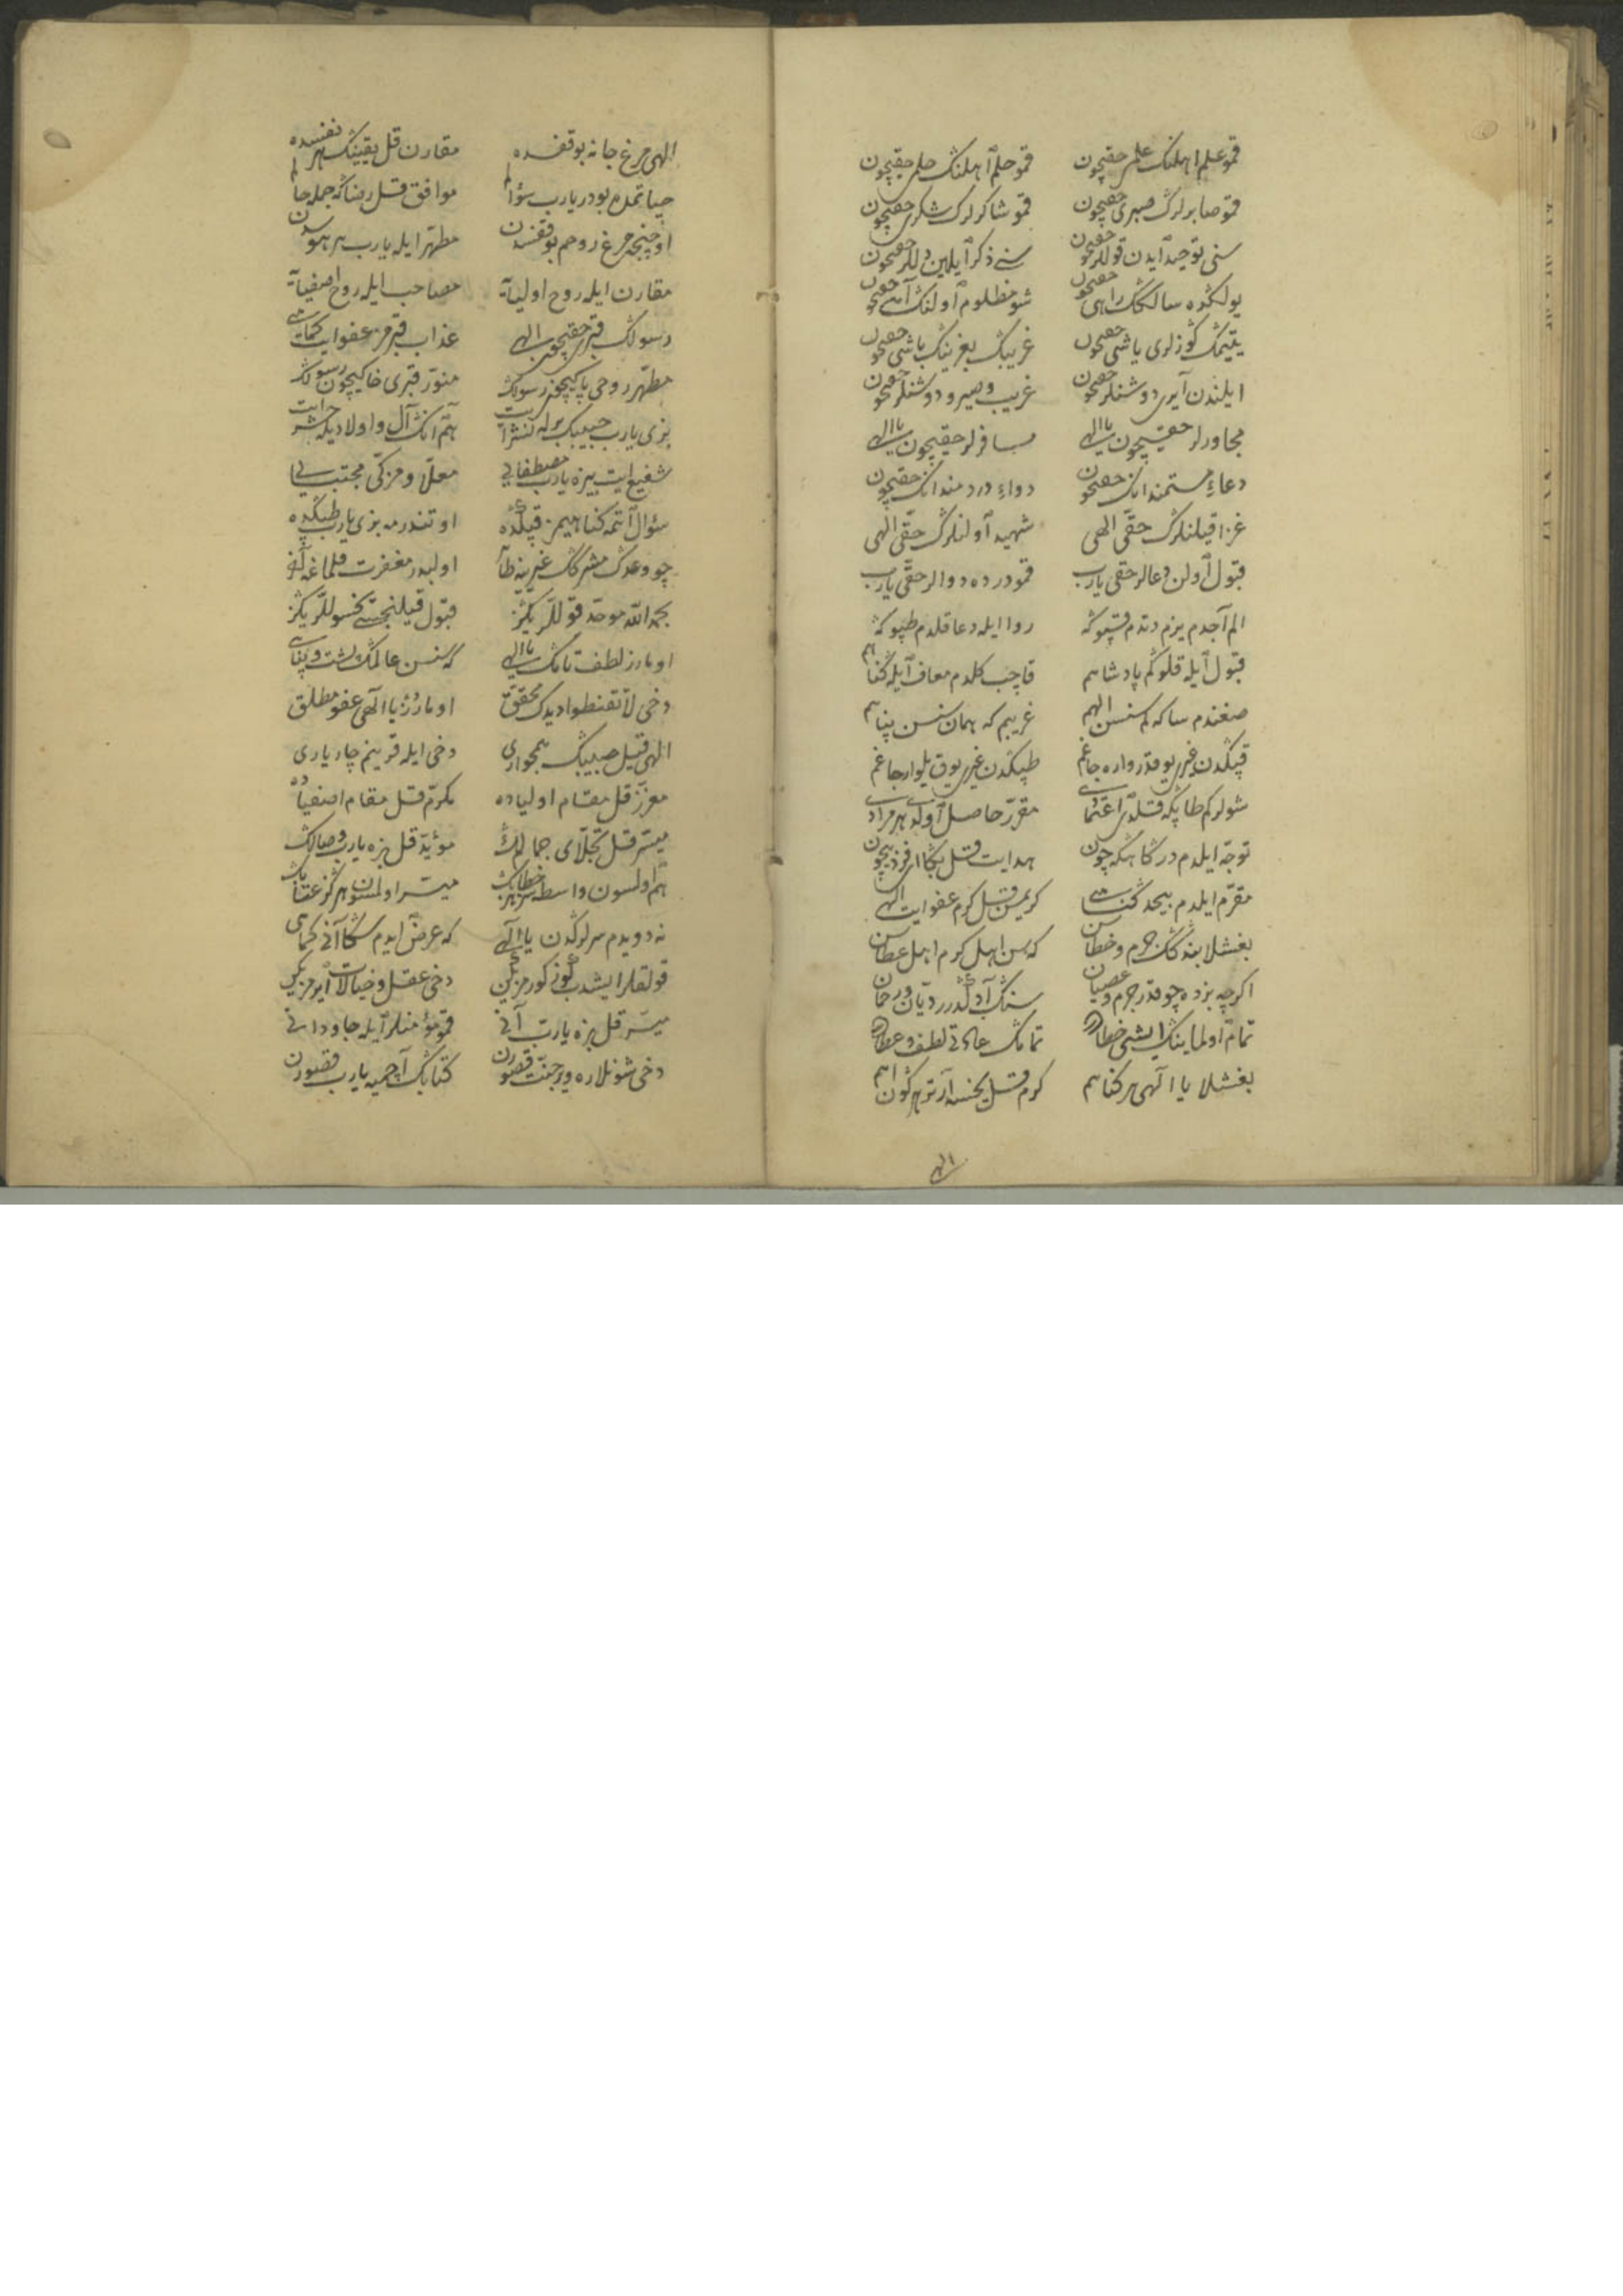 قمو علم اهلنك علمی حقیچون قمو حلم اهلنك حلمی حقیچون
قمو صابرلرك صبری حقیچون قمو شاكرلرك شكری حقیچون
سنی توحید ایدن قوللر حقیچون سنی ذكر ایلین دللر حقیچون
یولكده سالكك راهی حقیچون شو مظلوم اولنك آهی حقیچون
یتیمك كوزلری یاشی حقیچون غریبك بغرینك باشی حقیچون
ایلندن آیری دوشنلر حقیچون غریب و دوشنلر حقیچون
مجاورلر حقیچون یا الهی مسافرلر حقیچون یا الهی
دعاء مستمندانك حقیچون دواء دردمندانك حقیچون
غزا قیلنلرك حقی الهی شهید اولنلرك حقی الهی
قبول اولن دعالر حقی یارب قمو درده دوالر حقی یارب
الم آچدم یوزم دوتدم قپوكه روا ایله دعا قلدم طپوكه
قبول ایله قلوكم پادشاهم قاچب كلدم معاف ایله كناهم
صغندم ساكه كم سنسن الهم غریبم كه همان سنسن پناهم
قپكدن غیری یوقدر واره جاغم طپكدن غیری یوق یلوارجاغم
شولر كم طاپكه قلدی اعتمادی مقرر حاصل اولدی هر مرادی
توجه ایلدم دركاهكه چون هدایت قل بكا
مقرم ایلدم بیحد كناهی كریمسن قل كرم عفو ایت الهی
بغشلا بنده كك جرم و خطاسن كه سن اهل كرم اهل عطاسن
اكرچه بزده چوقدر جرم و عصیان سنك آدكدرر دیان و رحمان
تمام اولماینك ایشی خطادر تمامك عادتی لطف و عطادر
بغشلا یا الهی هر كناهم كرم قل یخسه آرتر هر كون آهم
الهی
الهی مرغ جانه بو قفسده مقارن قل یقینك هر نفسده
حیاتمده بودر یارب سؤالم موافق قل رضاكه جمله حالم
اوچیجق مرغ روحم بو قفسدن مطهر ایله یارب هر هوسدن
مقارن ایله روح اولیایه مصاحب ایله روح اصفیایه
رسولك قبری حقیچون الهی عذاب قبرمز عفو ایت كماهی
مطهر روحی پاكیچون رسولك منور قبری خاكیچون رسولك
بزی یارب حبیبك برله حشر ایت هم انك آل و اولادیله نشر ایت
شفیع ایت بیزه یارب مصطفایی معلا و مزكی مجتبایی
سؤال اتمه كناهیمز قپكده اوتندرمه بزی یارب طپكده
چو وعدك مشركك غیرینه اولبدر مغفرت قلماغه
بحمدالله موحد قوللریكز قبول قیلنجسی یخسوللریكز
اومارز لطف تامك یا الهی كه سنسن عالمك پشت و پناهی
دخی لا تقنطوا دیدك محقق اومارز یا الهی عفو مطلق
الهی قیل حبیبك همجواری دخی ایله قرینم چار یاری
معزز قل مقام اولیاده مكرم قل مقام اصفیاده
میسر قل تجلای جمالك مؤید قل بزه یارب وصالك
هم اولسون واسطه سز هر خطابك میسر اولمسون هرگز عقابك
نه دویدم سرلركدن یا الهی كه عرض ایدم سكا آنی كماهی
قولقلر ایشدب كوز كورمزیكن دخی عقل و خیالات ایرمزیكن
میسر قل بزه یارب آنی قمو مؤمنلر ایله جاودانی
دخی شونلاره ویر جنت قصورن كتابك آچمیه یارب قصورن